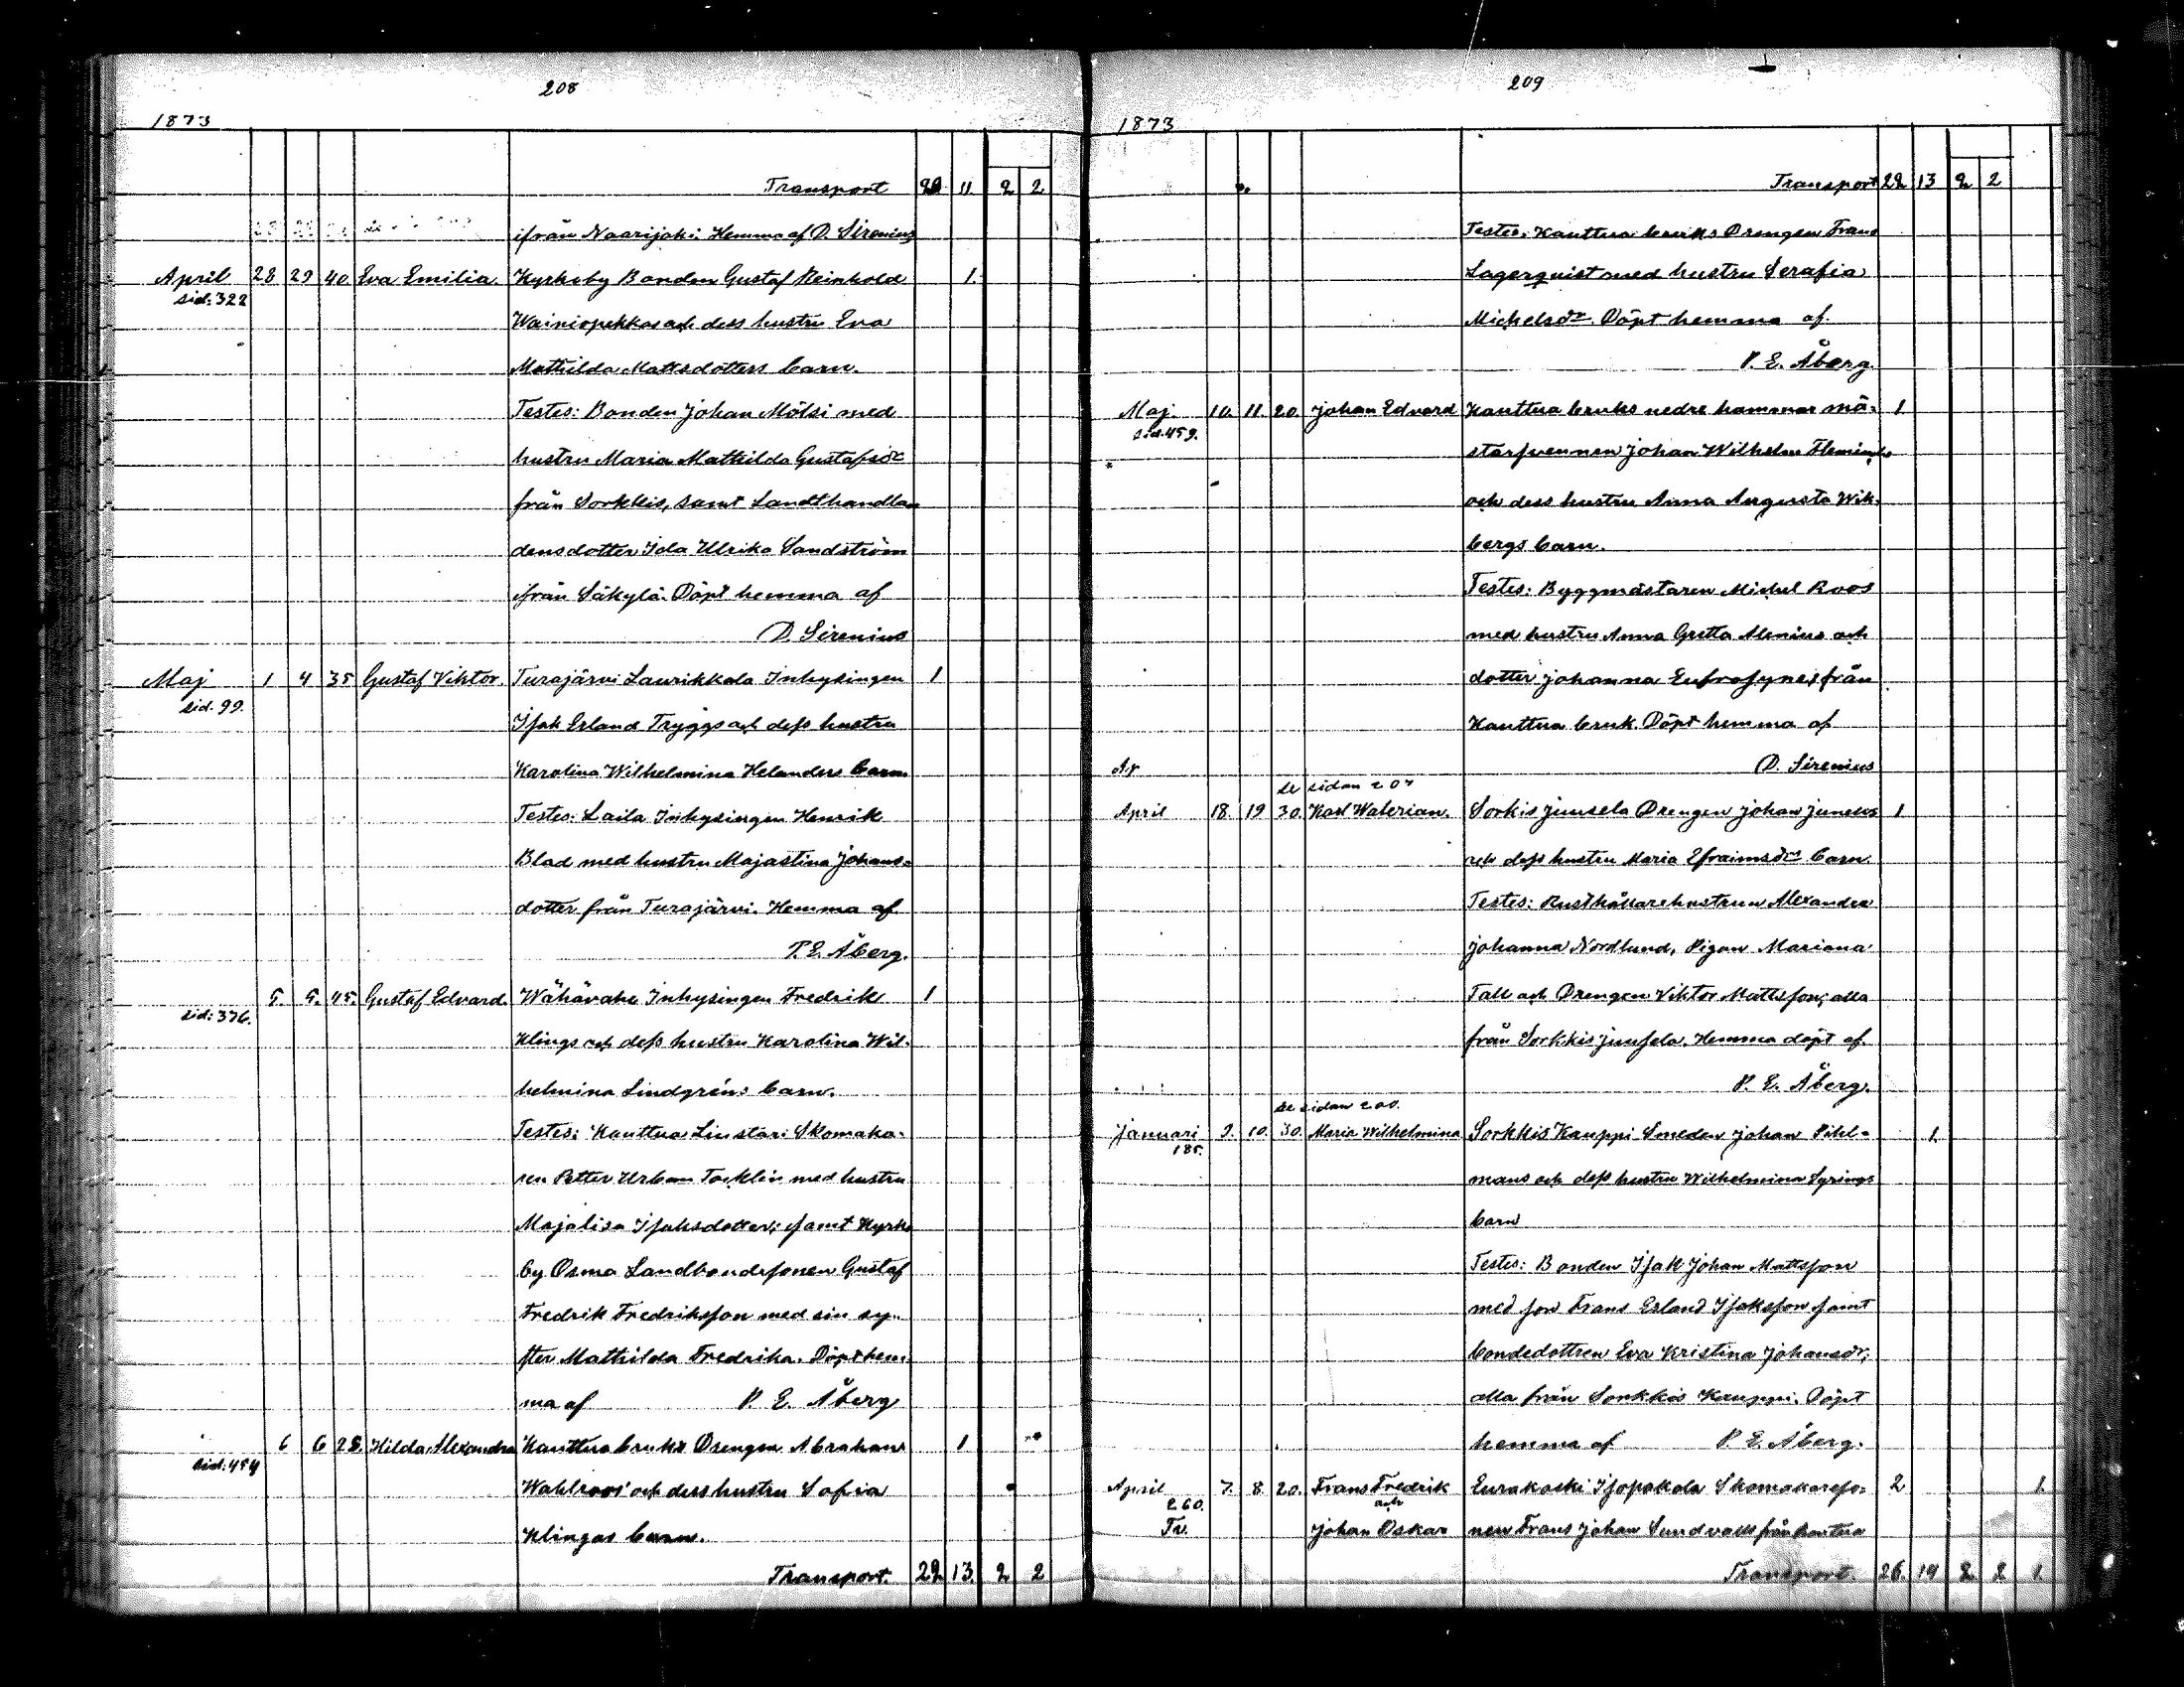 208
1873
Transport 20 11. 2 2
ifrån Naarijoki. Hemma af D. Sirenius
April 28 29 40. Eva Emilia. Kyrkoby Bonden Gustaf Reinhold 1.
sid. 322
Wainiopekkas och dess hustru Eva
Mathilda Mattsdotters barn.
Testes: Bonden Johan Mölsi med
hustru Maria Mathilda Gustafsdr
från Sorkkis, samt Landthandlan
densdotter Ida Ulrika Sandström
ifrån Säkylä. Döpt hemma af
D. Sirenius
Maj 1 4 35 Gustaf Viktor. Turajärvi Laurikkala Inhysingen 1
sid. 99.
Isak Erland Tryggs och dess hustru
Karolina Wilhelmina Helanders barn
Testes: Laila Inhysingen Henrik
Blad med hustru Majastina Johans-
dotter från Turajärvi. Hemma af
P. E. Åberg.
5. 5. 45. Gustaf Edvard. Wähävahe Inhysingen Fredrik 1
sid: 376.
Klings och dess hustru Karolina Wil-
helmina Lindgréns barn.
Testes: Kauttua Linstari Skomaka-
ren Petter Urban Tocklin med hustru
Majalisa Isaksdotter; samt Kyrko
by Osma Landbondesonen Gustaf
Fredrik Fredriksson med sin sy-
ster Mathilda Fredrika. Döpt hem-
ma af P. E. Åberg
6 6 28. Hilda Alexandra Kauttua bruks Drengen Abraham 1
sid: 454
Wahlroos' och dess hustru Sofia
Klingas barn.
Transport. 22 13. 2 2
209
1873
Transport 22 13 2 2
Testes: Kauttua bruks Drengen Frans
Lagerquist med hustru Serafia
Michelsdr. Döpt hemma af
P. E. Åberg.
Maj. 10. 11. 20. Johan Edvard Kauttua bruks nedre hammar mä- 1
sid. 459.
starsvennen Johan Wilhelm Flemings
och dess hustru Anna Augusta Wik-
bergs barn.
Testes: Byggmästaren Michel Roos
med hustru Anna Gretta Alenius och
dotter Johanna Eufrosyne, från
Kauttua bruk. Döpt hemma af
Ap D. Sirenius
se sidan 207
April 18. 19 30. Karl Walerian. Sorkis Juusela Drengen Johan 1
och dess hustru Maria Efraimsdrs barn.
Testes: Rusthållarehustrun Alexandra
Johanna Nordlund, Pigan Mariana
Tall och Drengen Viktor Mattsson; alla
från Sorkkis Juusela. Hemma döpt af
P. E. Åberg.
se sidan 200.
Januari 9. 10. 30. Maria Wilhelmina Sorkkis Kauppi Smeden Johan Pihl- 1.
185.
mans och dess hustru Wilhelmina Syrings
barn
Testes: Bonden Isak Johan Mattsson
med son Frans Erland Isaksson samt
bondedottren Eva Kristina Johansdr;
alla från Sorkkis Kauppi. Döpt
hemma af P. E. Åberg.
April 7. 8. 20. Frans Fredrik Eurakoski Isopakola Skomakareso- 2 1.
260. och
Tv. Johan Oskar nen Frans Johan Sundvalls från
Transport. 26. 14 2 2 1.